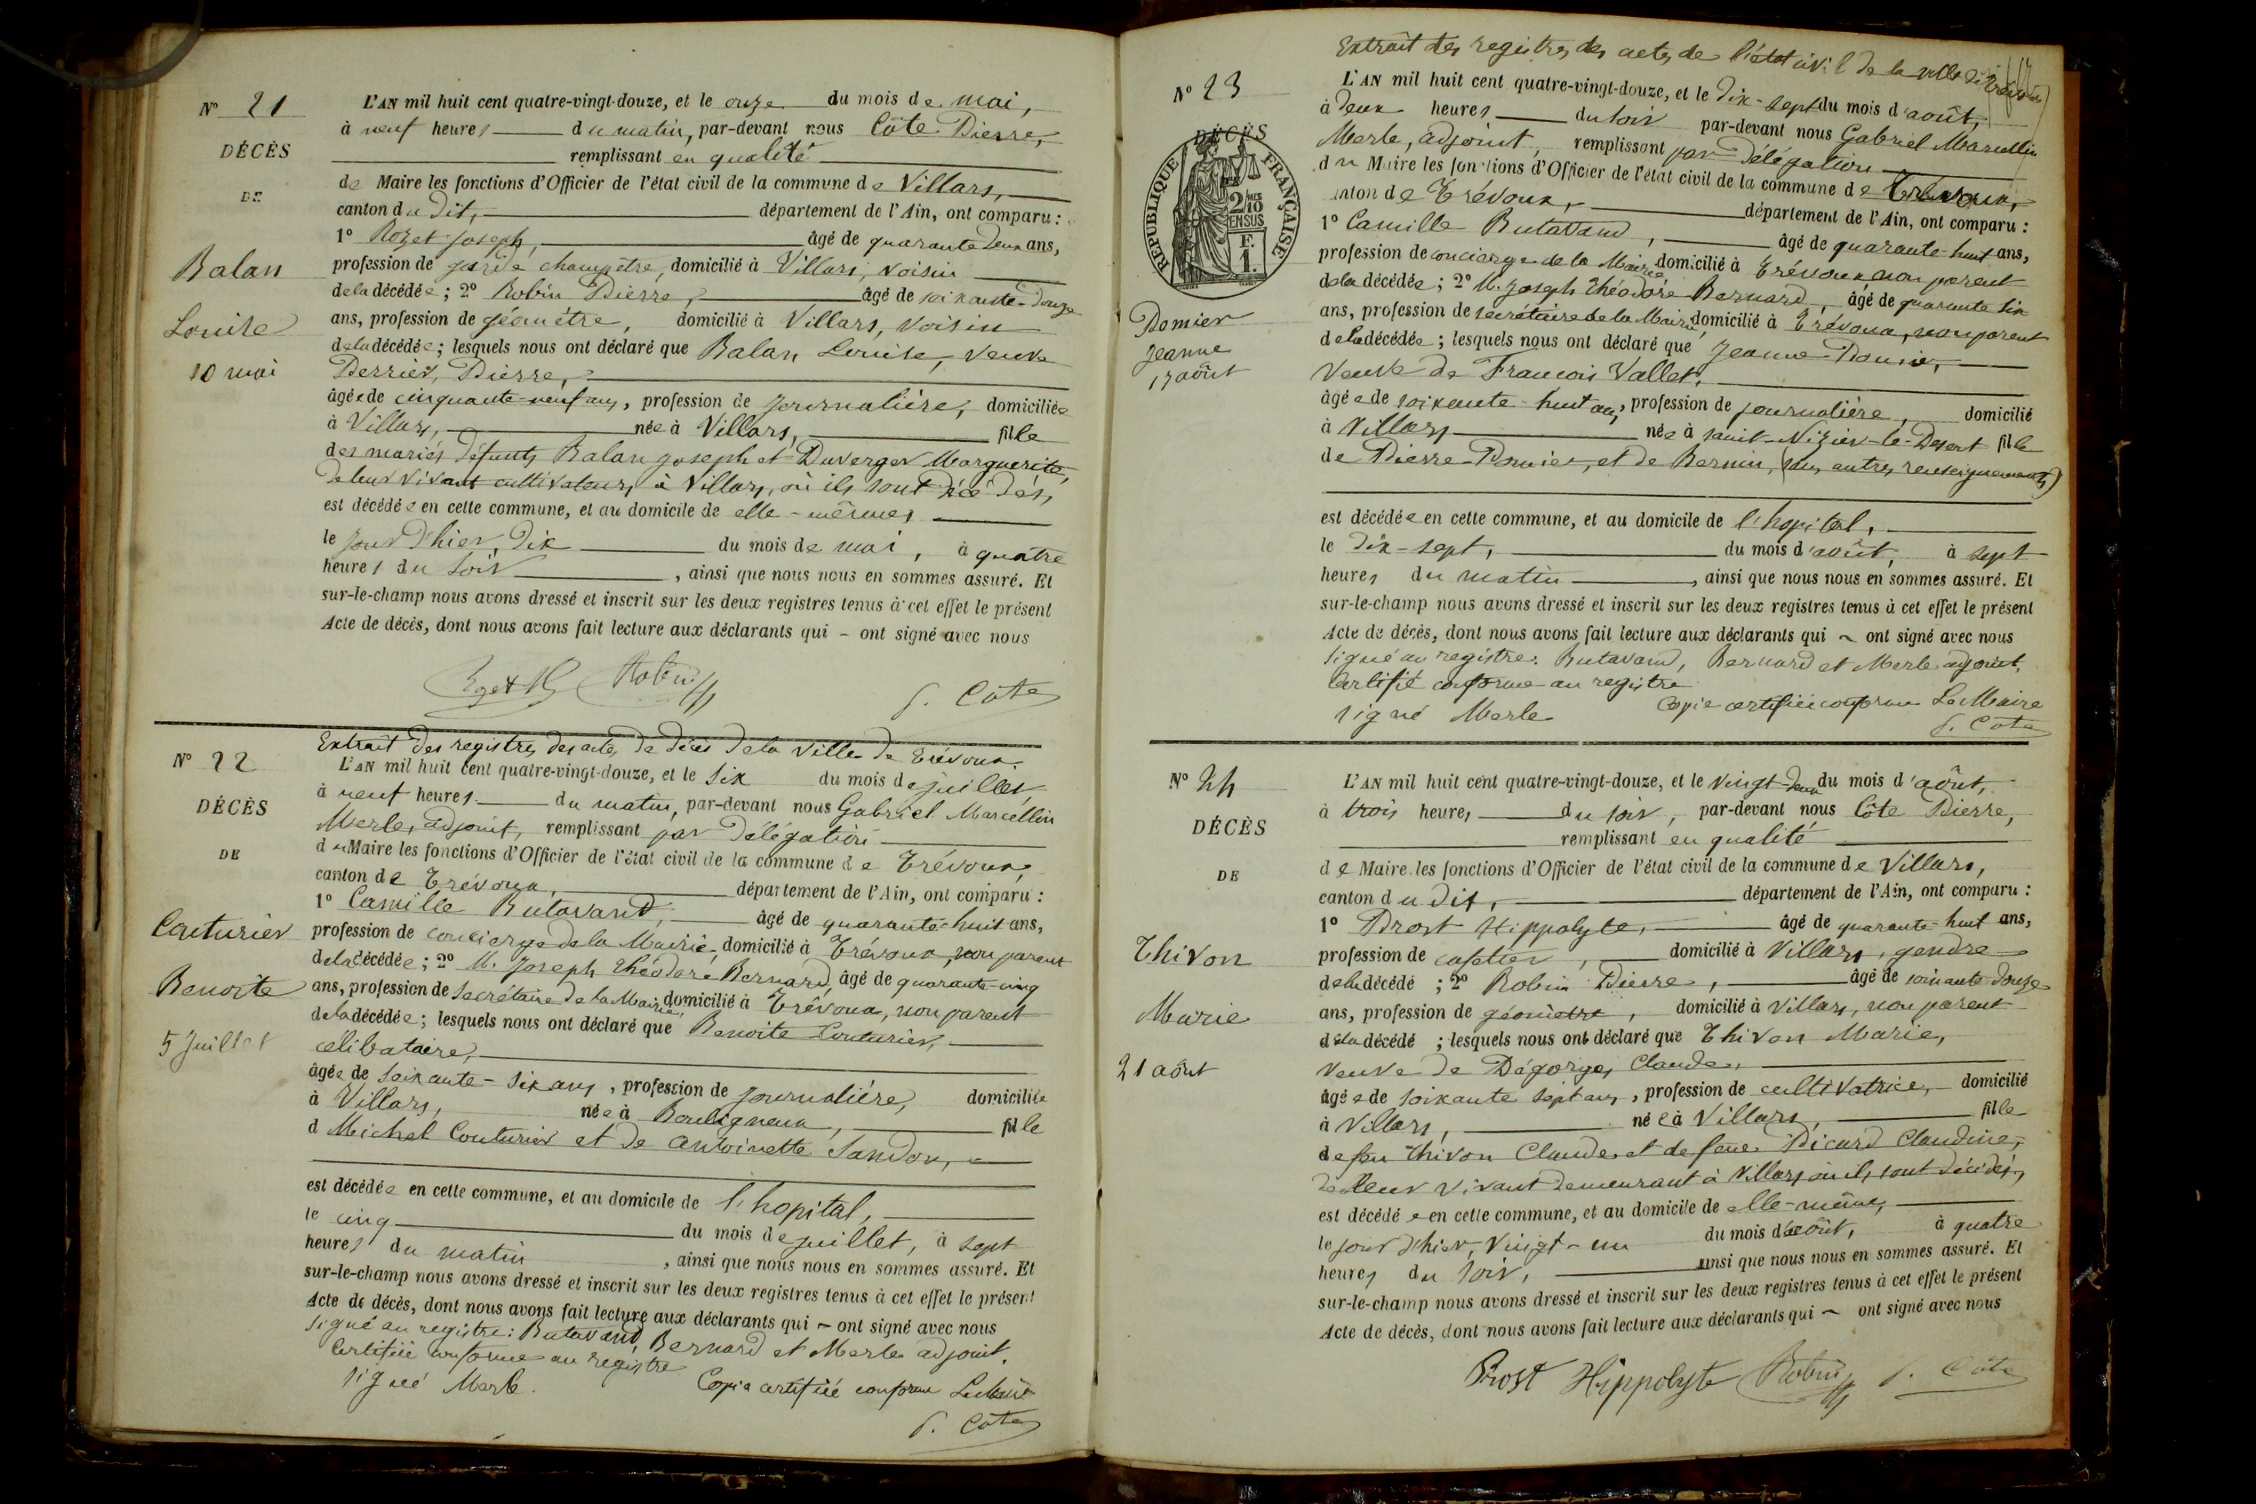 N° 21
DÉCÈS
DE
Balan
Louise
10 mai
L'AN mil huit cent quatre-vingt-douze, et le onze du mois de mai,
à neuf heures du matin, par-devant nous Côte Pierre,
remplissant en qualité
de Maire les fonctions d'Officier de l'état civil de la commune de Villars,
canton du dit, département de l'Ain, ont comparu :
1° Rozet Joseph, âgé de quarante deux ans,
profession de garde champêtre, domicilié à Villars, voisin
de la décédée ; 2° Robin Pierre, âgé de soixante-douze
ans, profession de géomètre, domicilié à Villars, voisin
de la décédée ; lesquels nous ont déclaré que Balan Louise, veuve
Perrier, Pierre,
âgée de cinquante-neuf ans, profession de journalière, domiciliée
à Villars, née à Villars, fille
des mariés défunts Balan Joseph et Duverger Marguerite,
de leur vivant cultivateurs à Villars, où ils sont décédés,
est décédée en cette commune, et au domicile de elle-mêmes
le jour d'hier, dix du mois de mai, à quatre
heures du soir, ainsi que nous nous en sommes assuré. Et
sur-le-champ nous avons dressé et inscrit sur les deux registres tenus à cet effet le présent
Acte de décès, dont nous avons fait lecture aux déclarants qui - ont signé avec nous
Rozet Robin P. Côte
Extrait des registres des actes de décès de la ville de Trévoux.
N° 22
DÉCÈS
DE
Couturier
Benoite
5 Juillet
L'AN mil huit cent quatre-vingt-douze, et le six du mois de juillet
à neuf heures du matin, par-devant nous Gabriel Marcellin
Merle, adjoint, remplissant par délégation
du Maire les fonctions d'Officier de l'état civil de la commune de Trévoux,
canton de Trévoux, département de l'Ain, ont comparu :
1° Camille Butavand, âgé de quarante-huit ans,
profession de concierge de la Mairie, domicilié à Trévoux, non parent
de la décédée ; 2° M. Joseph Théodore Bernard, âgé de quarante-cinq
ans, profession de secrétaire de la Mairie, domicilié à Trévoux, non parent
de la décédée ; lesquels nous ont déclaré que Benoite Couturier,
célibataire,
âgée de soixante-six ans, profession de journalière, domiciliée
à Villars, née à Bouligneux, fille
d Michel Couturier et de Antoinette Sandon,
est décédée en cette commune, et au domicile de l'hopital,
le cinq du mois de juillet, à sept
heures du matin, ainsi que nous nous en sommes assuré. Et
sur-le-champ nous avons dressé et inscrit sur les deux registres tenus à cet effet le présent
Acte de décès, dont nous avons fait lecture aux déclarants qui - ont signé avec nous
Signé au registre : Butavand, Bernard et Merle adjoint.
Certifié conforme au registre
signé Merle. Copie certifiée conforme Le Maire
P. Côte
Extrait des registres des actes de l'état civil de la ville de Trévoux
N° 23
DÉCÈS
RÉPUBLIQUE FRANÇAISE
2/10 EN SUS
F.
1.
Domier
Jeanne
17 août
L'AN mil huit cent quatre-vingt-douze, et le dix-sept du mois d'août,
à deux heures du soir par-devant nous Gabriel Marcellin
Merle, adjoint, remplissant par délégation
du Maire les fonctions d'Officier de l'état civil de la commune de Trévoux,
canton de Trévoux, département de l'Ain, ont comparu :
1° Camille Butavand, âgé de quarante-huit ans,
profession de concierge de la Mairie, domicilié à Trévoux non parent
de la décédée ; 2° M. Joseph Théodore Bernard, âgé de quarante six
ans, profession de secrétaire de la Mairie, domicilié à Trévoux, non parent
de la décédée ; lesquels nous ont déclaré que Jeanne Domier,
veuve de François Vallet,
âgée de soixante-huit ans, profession de journalière, domicilié
à Villars née à Saint-Nizier-le-Desert fille
de Pierre Domier, et de Bernin, (sans autres renseignements)
est décédée en cette commune, et au domicile de l'hopital,
le dix-sept, du mois d'août, à sept
heures du matin, ainsi que nous nous en sommes assuré. Et
sur-le-champ nous avons dressé et inscrit sur les deux registres tenus à cet effet le présent
Acte de décès, dont nous avons fait lecture aux déclarants qui ~ ont signé avec nous
Signé au registre : Butavand, Bernard et Merle adjoint.
Certifié conforme au registre
signé Merle Copie certifiée conforme Le Maire
P. Côte
N° 24
DÉCÈS
DE
Thivon
Marie
21 août
L'AN mil huit cent quatre-vingt-douze, et le vingt-deux du mois d'août,
à trois heures du soir, par-devant nous Côte Pierre,
remplissant en qualité
de Maire les fonctions d'Officier de l'état civil de la commune de Villars,
canton du dit, département de l'Ain, ont comparu :
1° Prost Hippolyte, âgé de quarante-huit ans,
profession de cafetier, domicilié à Villars, gendre
de la décédé ; 2° Robin Pierre, âgé de soixante douze
ans, profession de géomètre, domicilié à Villars, non parent
de la décédé ; lesquels nous ont déclaré que Thivon Marie,
veuve de Dégorges Claude,
âgée de soixante sept ans, profession de cultivatrice, domicilié
à Villars, née à Villars, fille
de feu Thivon Claude et de feue Picard Claudine,
de leur vivant demeurant à Villars où ils sont décédés,
est décédée en cette commune, et au domicile de elle-même,
le jour d'hier, vingt-un du mois d'août, à quatre
heures du soir, ainsi que nous nous en sommes assuré. Et
sur-le-champ nous avons dressé et inscrit sur les deux registres tenus à cet effet le présent
Acte de décès, dont nous avons fait lecture aux déclarants qui ~ ont signé avec nous
Prost Hippolyte Robin P. Côte